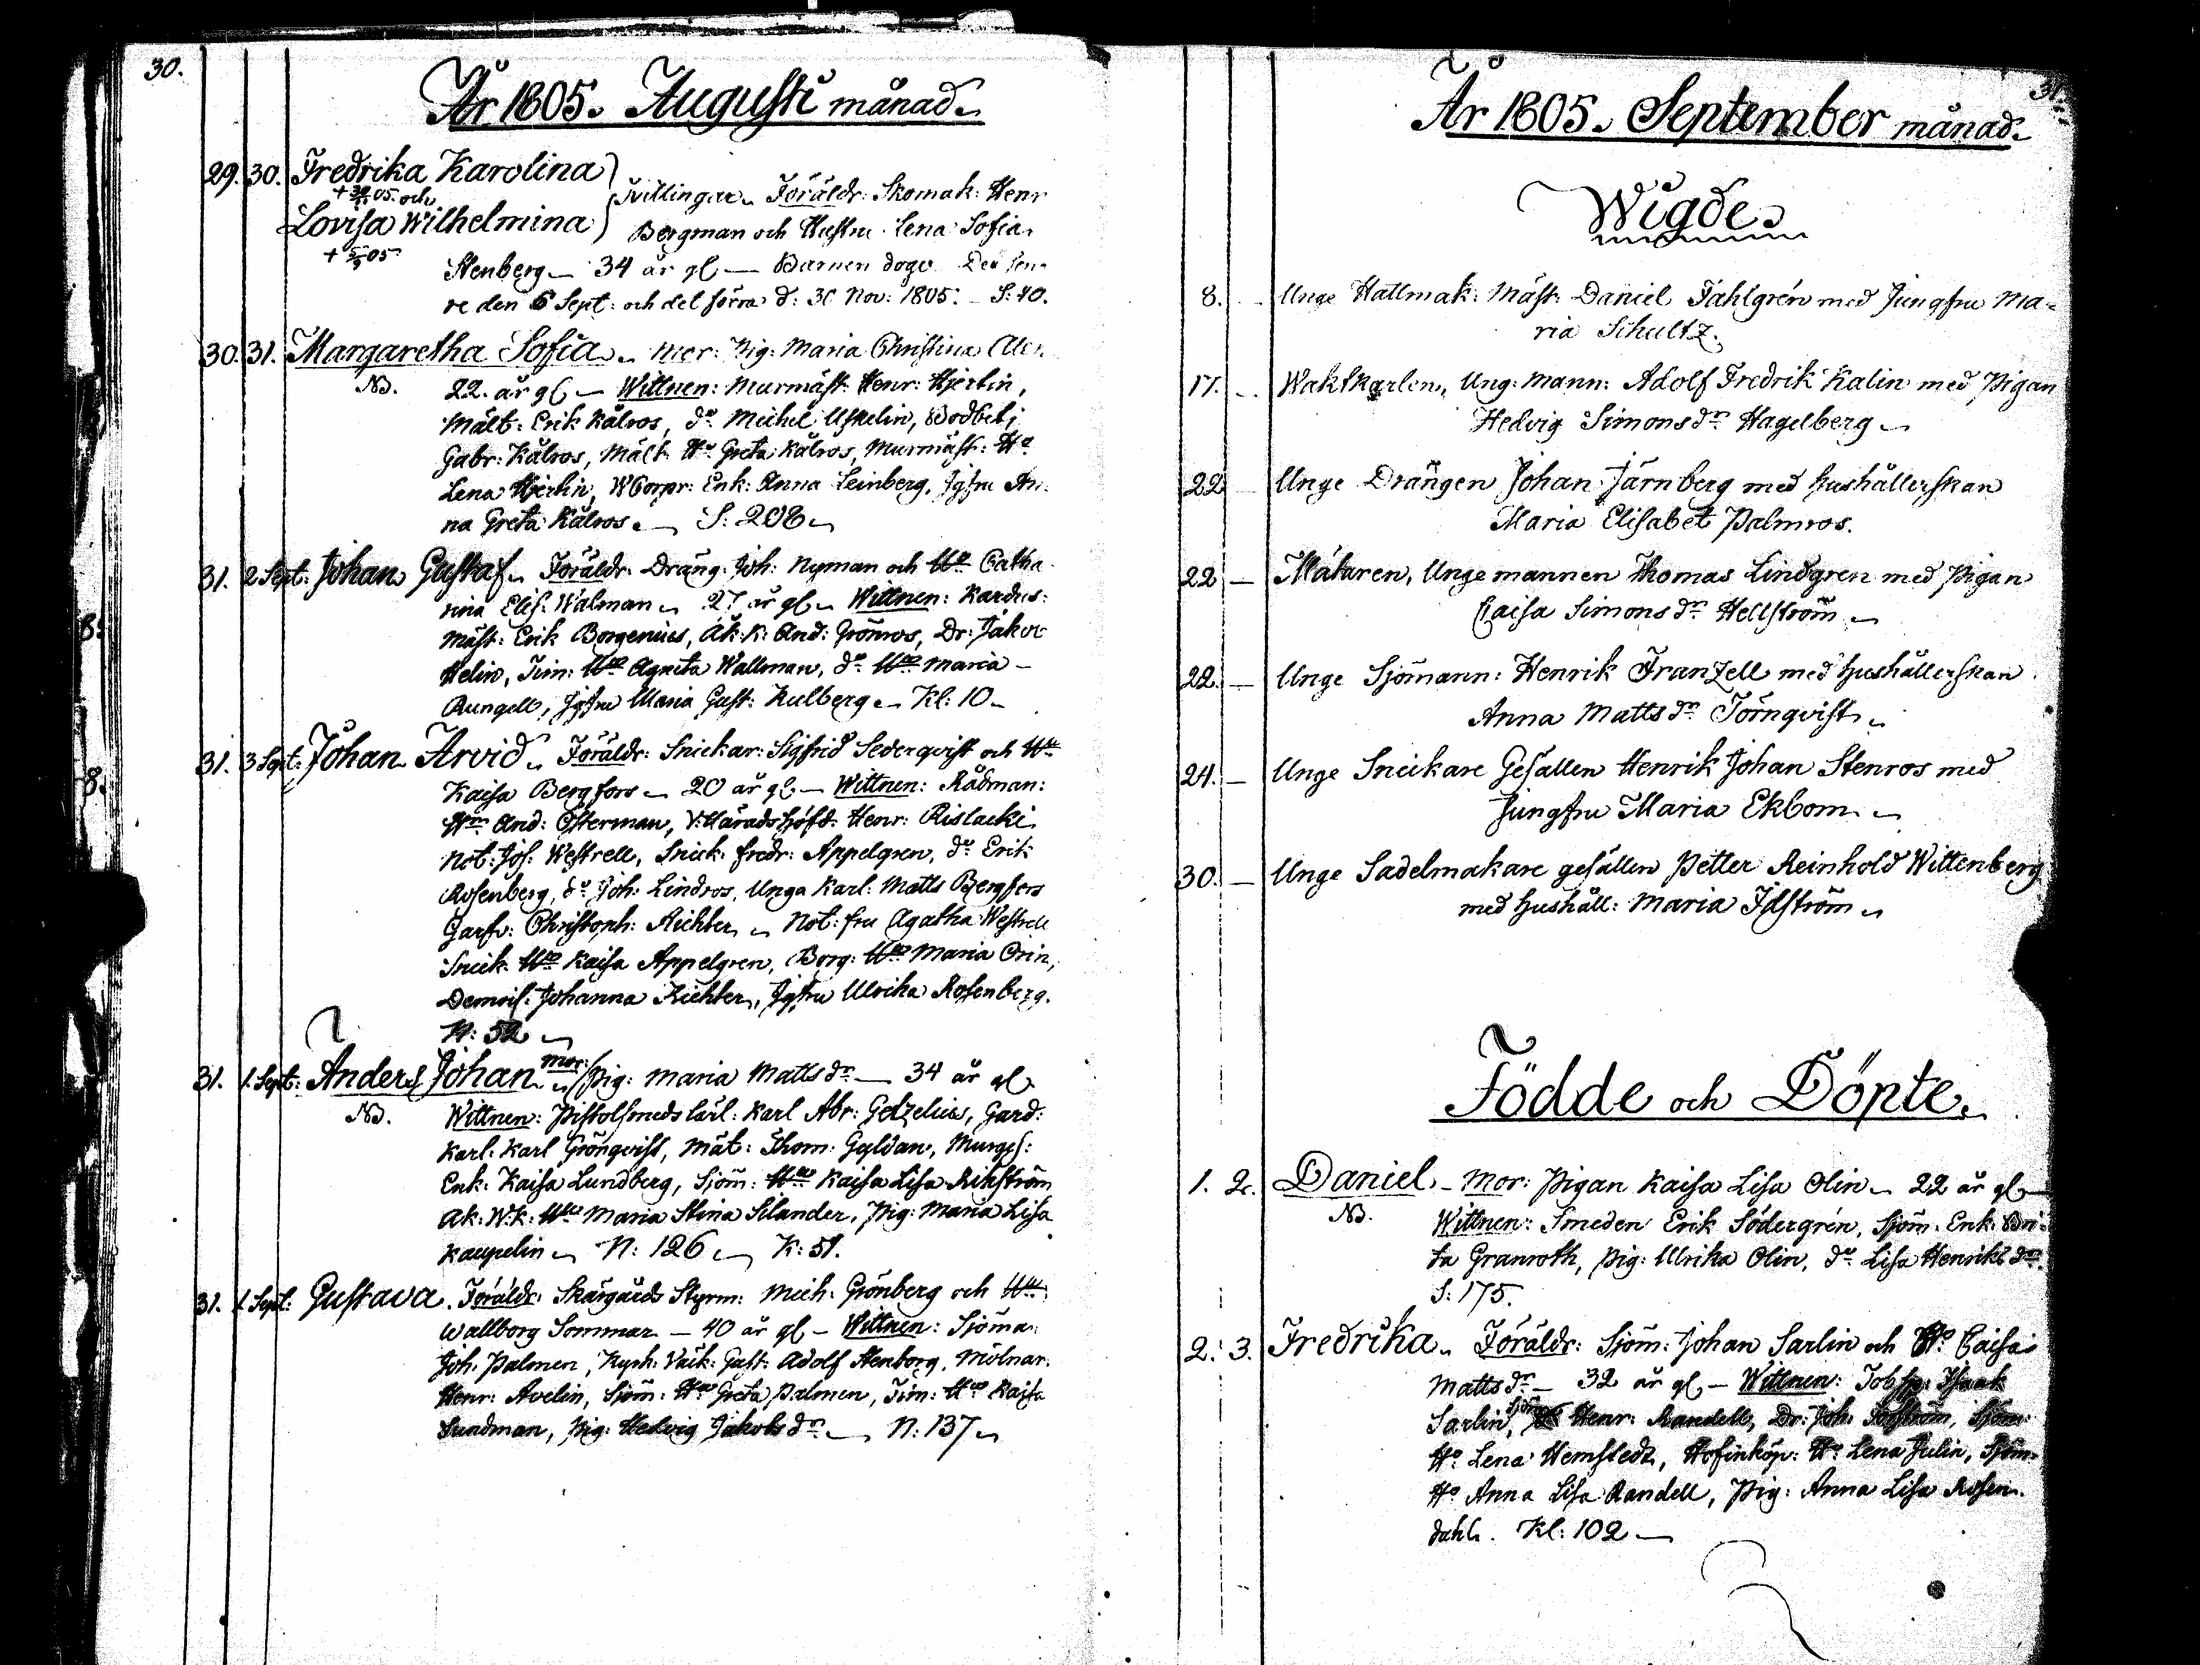 30.
År 1805. Augusti månad.
29. 30. Fredrika Karolina
+ 30/11 05. och
Tvillingar. Föräldr: Skomak: Henr
Lovisa Wilhelmina
Bergman och Hustru Lena Sofia
+ 5/9 05
Stenberg — 34 år gl — Barnen dogo Den sena-
re den 6 Sept: och det förra d: 30 Nov: 1805. — S: 40.
30. 31. Margaretha Sofia. Mor: Pig: Maria Christina
NB. 22. år gl — Wittnen: Murmäst: Henr: Hjertin,
Mält: Erik Kålros, do Michel Uskelin,
Gabr: Kålros, Mält: Ho Greta Kålros, Murmäst: Ho
Lena Hjertin, WCorpr: Enk: Anna Leinberg, Jgfru An-
na Greta Kålros. — S: 208
31. 2 Sept: Johan Gustaf. Föräldr: Dräng: Joh: Nyman och Hu Catha-
rina Elis: Walman 27 år gl. Wittnen: Kardus:
mäst: Erik Borgenius, Åk: K: And: Grönros, Dr: Jakob
Helin, Tim: Hu Agneta Wallman, do Hu Maria —
Rungell, Jgfru Maria Gust: Kulberg. — Kl: 10
31. 3 Sept: Johan Arvid. Föräldr: Snickar: Sigfrid Sederqvist och Hu
Kaisa Bergfors — 20 år gl. — Wittnen: Rådman:
Hrn And: Österman, V: Häradshöfd: Henr: Rislacki
Not: Jos: Westrell, Snick: Fredr: Appelgren, do Erik
Rosenberg, do Joh: Lindros, Unga Karl: Matts Bergfors
Garfv: Christoph: Richter. Not: fru Agatha Westrell
Snick: Hu Kaisa Appelgren, Borg: Hu Maria Orin,
Demois: Johanna Richter, Jgfru Ulrika Rosenberg.
N: 52
31. 1. Sept: Anders Johan. Mor: Pig: Maria Mattsdr — 34 år gl.
NB. Wittnen: Pistolsmeds lärl: Karl Abr: Getzelius, Gard:
Karl: Karl Grönqvist, Mät: Thom: Gyldan, Murges:
Enk: Kaisa Lundberg, Sjöm: Hu Kaisa Lisa Rikström
Ak: W: k: Hu Maria Stina Silander, Pig: Maria Lisa
Kaupelin — N: 126 — K: 51.
31. 1 Sept: Gustava. Föräldr: Skärgårds Styrm: Mich: Grönberg och Hu
Wallborg Sommar — 40 år gl — Wittnen: Sjöma:
Joh: Palmen, Kyrk: Väik: Gust: Adolf Stenborg, Mölnar:
Henr: Avelin, Sjöm: Hu Greta Palmen, Tim: Hu Kaisa
Sundman, Pig: Hedvig Jakobsdr — N: 137
31.
År 1805. September månad.
Wigde.
8. — Unge Hattmak: Mäst: Daniel Fahlgrén med Jungfru Ma-
ria Schultz.
17. — Waktkarlen, Ung: Mann: Adolf Fredrik Kalin med Pigan
Hedvig Simonsdr Hagelberg
22 — Unge Drängen Johan Järnberg med hushållerskan
Maria Elisabet Palmros.
22 — Mätaren, Unge mannen Thomas Lindgren med Pigan
Caisa Simonsdr Hellström
22. — Unge Sjömann: Henrik Franzell med hushållerskan
Anna Mattsdr Törnqvist
24. — Unge Snickare Gesällen Henrik Johan Stenros med
Jungfru Maria Ekbom
30. — Unge Sadelmakare gesällen Petter Reinhold Wittenberg
med hushåll: Maria Idström
Födde och Döpte.
1. 2. Daniel — Mor: Pigan Kaisa Lisa Olin — 22 år gl —
NB. Wittnen: Smeden Erik Södergrén, Sjöm: Enk: Bri-
ta Granroth, Pig: Ulrika Olin, do Lisa Henriksdr.
S: 175.
2. 3. Fredrika. Föräldr: Sjöm: Johan Sarlin och Ho Caisa
Mattsdr — 32 år gl — Wittnen: Isaak
Sarlin, Sjöm Henr: Randell, Dr: Joh: Sjöm:
Ho Lena Hemstedt, Hofinköp: Ho Lena Julin, Sjöm:
Ho Anna Lisa Randell, Pig: Anna Lisa Rosen-
dahl. Kl: 102 —